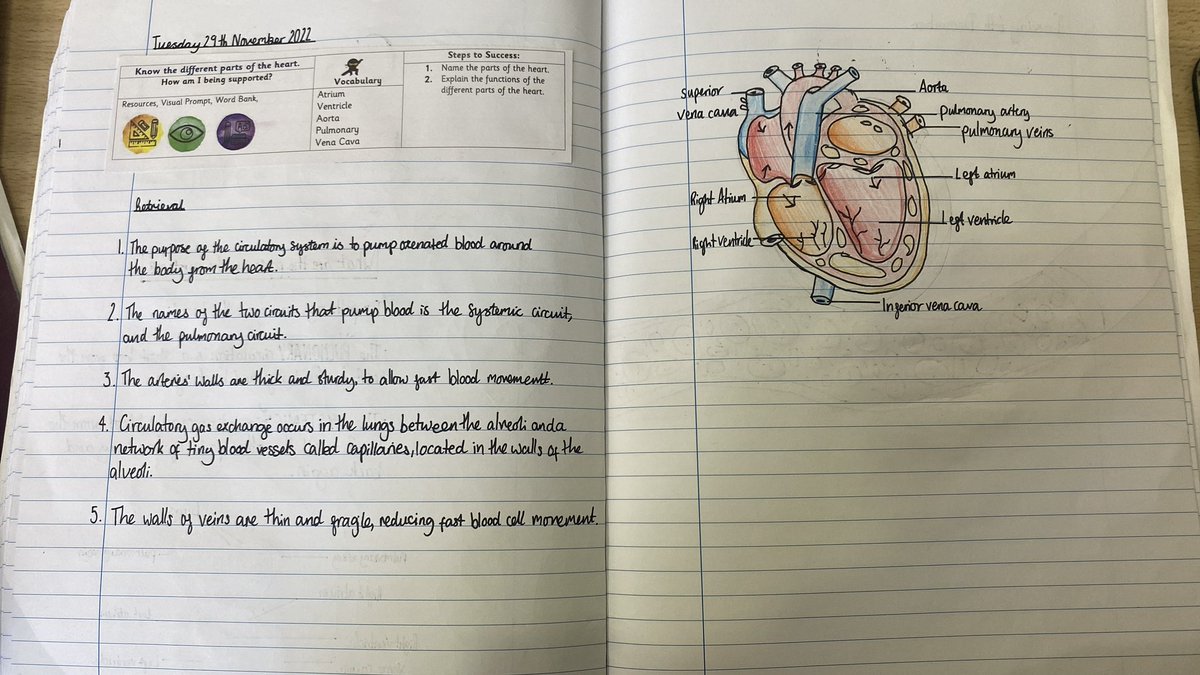 Tuesday 29th November 2022
Know the different parts of the heart.
How am I being supported?
Resources, Visual Prompt, Word Bank,
Vocabulary
Atrium
Ventricle
Aorta
Pulmonary
Vena Cava
Steps to Success:
1. Name the parts of the heart.
2. Explain the functions of the
different parts of the heart.
Retrieval
1. The purpose of the circulatory system is to pump oxenated blood around
the body from the heart.
2. The names of the two circuits that pump blood is the systemic circuit,
and the pulmonary circuit.
3. The arteries' walls are thick and sturdy, to allow fast blood movementt.
4. Circulatory gas exchange occurs in the lungs between the alveoli and a
network of tiny blood vessels called capillaries, located in the walls of the
alveoli.
5. The walls of veins are thin and fragle, reducing fast blood cell movement.
Superior
vena cava
Right Atrium
Right ventricle
Aorta
Pulmonary artery
pulmonary veins
Left atrium
Left ventricle
Inferior vena cava